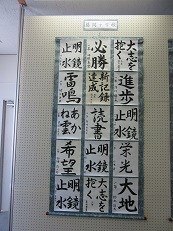 大志を
抱く
進歩
明鏡
止水
栄光
大地
必勝
新記録
達成
読書
明鏡
止水
大志を
抱く
明鏡
止水
雷鳴
あか
ね雲
希望
明鏡
止水